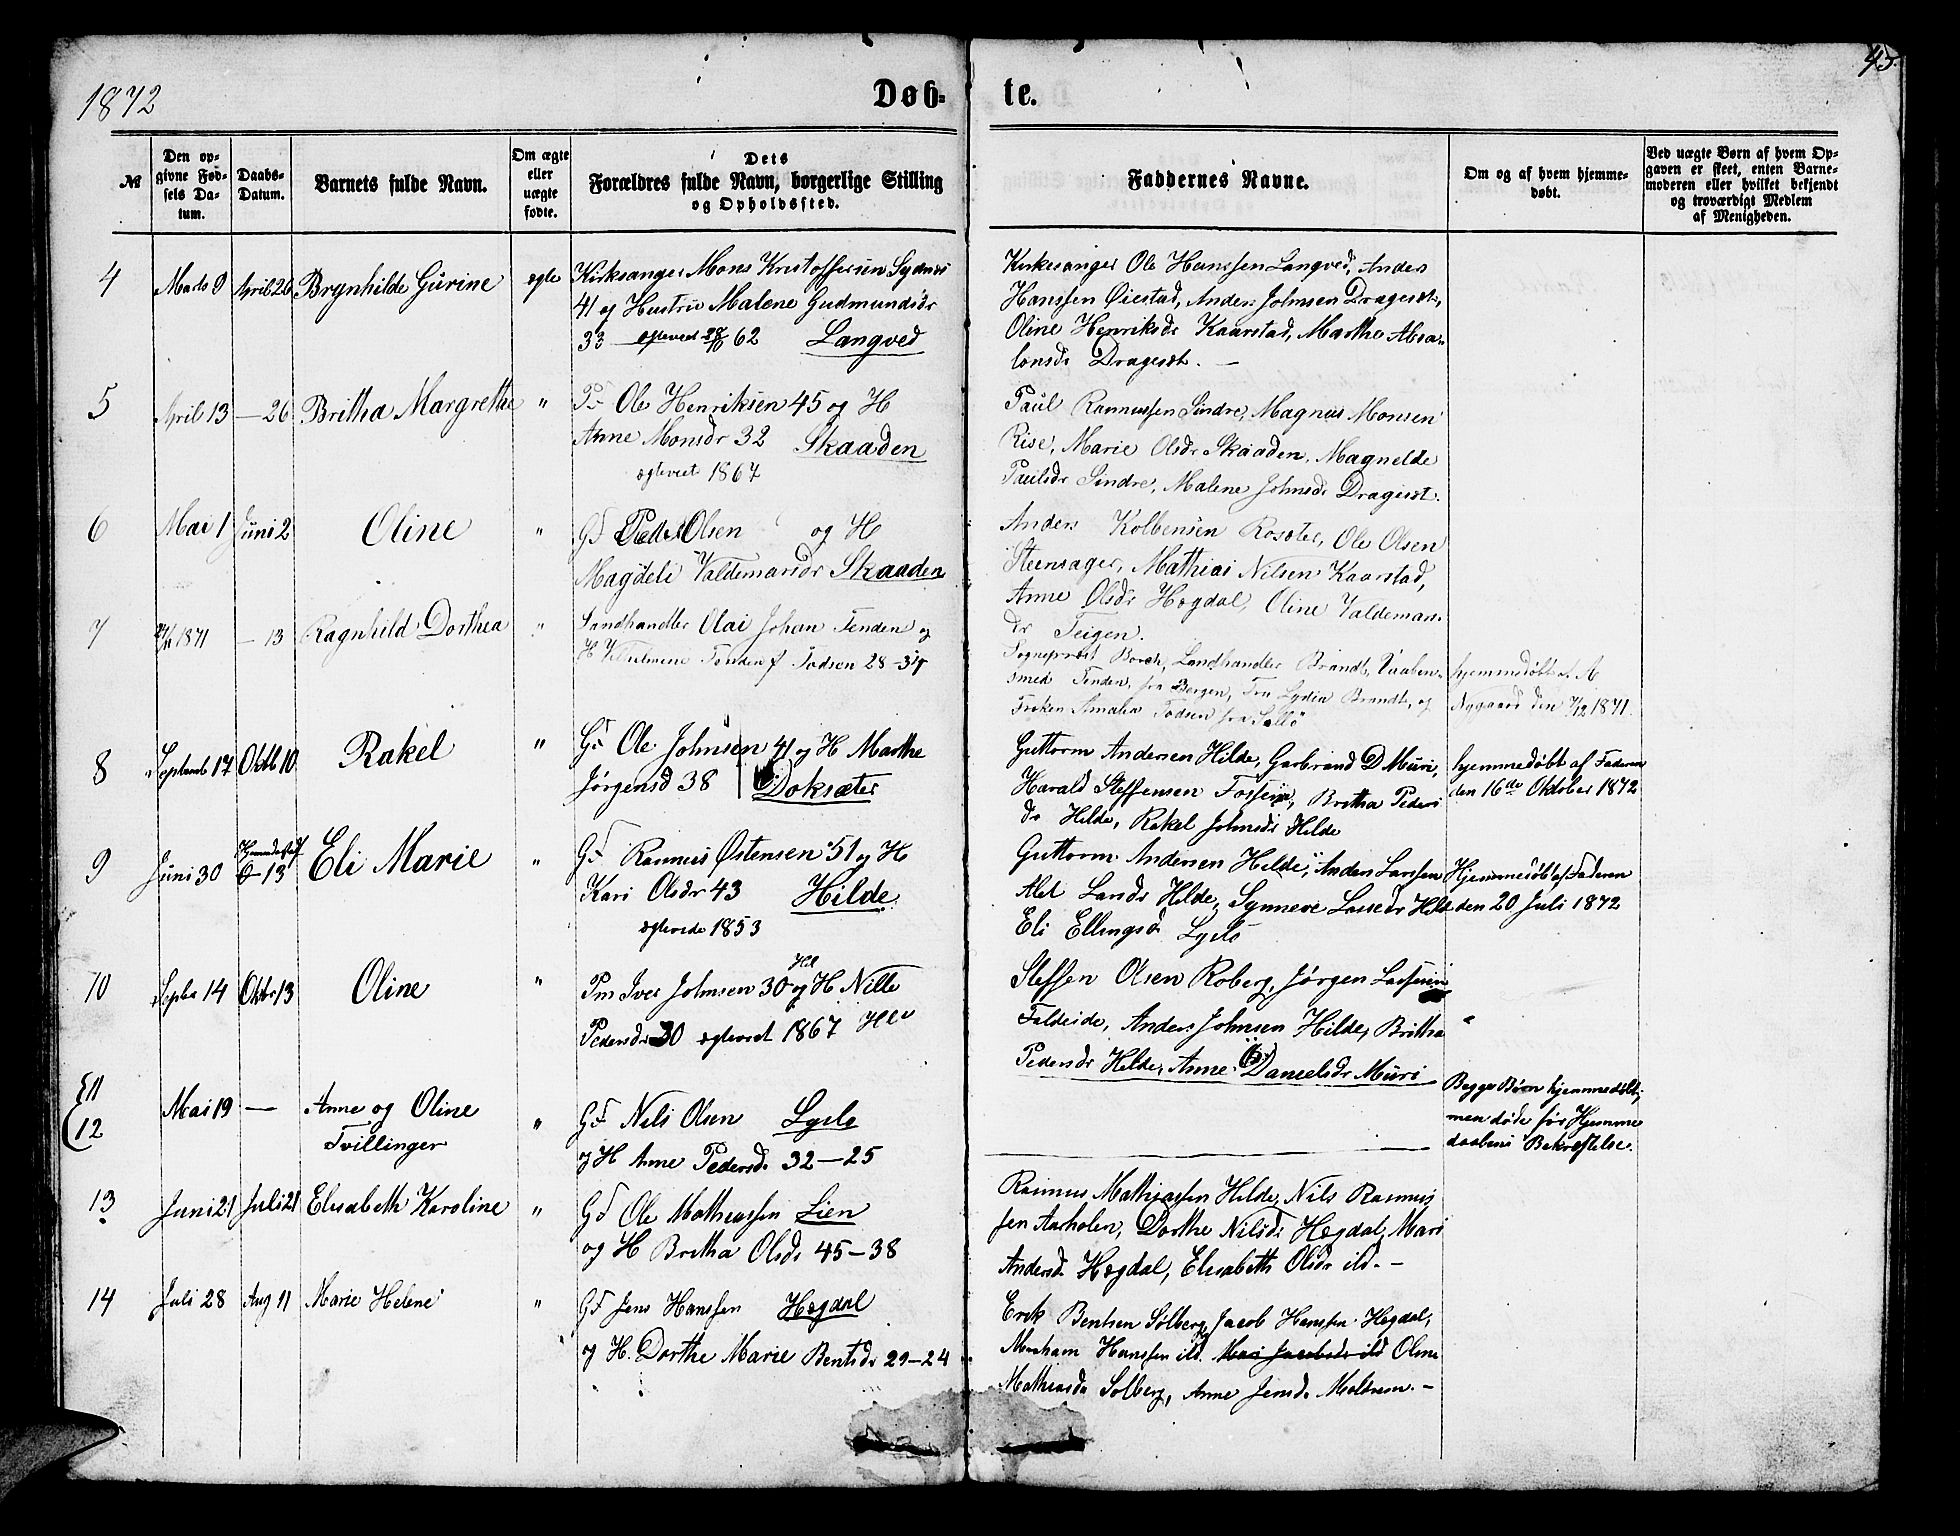 1872
Døb-
te.
45.
№
Den op-
givne Fød-
sels Da-
tum.
Daabs-
Datum.
Barnets fulde Navn.
Om ægte
eller
uægte
fødte.
Dets
Forældres fulde Navn, borgerlige Stilling
og Opholdssted.
Faddernes Navne.
Om og af hvem hjemme-
døbt.
Ved uægte Børn af hvem Op-
gaven er skeet, enten Barne-
moderen eller hvilket bekjendt
og troværdigt Medlem
af Menigheden.
4
Marts 9
April 26
Brynhilde Gurine
ægte
Kirksanger Mons Kristoffersen Sydnes
41 og Hustru Malene Gudmundsdr
33 ægteved 28/10 62 Langved
Kirkesanger Ole Hanssen Langved, Anders
Hanssen Øiestad, Anders Johnsen Dragesæt,
Oline Henriksdr Kaarstad, Marthe Absa-
lonsdr Dragesæt. —
5
April 13
— 26
Britha Margrethe
"
Ole Henriksen 45 og H
Anne Monsdr 32 Skaaden
ægteviet 1867
Paul Rasmussen Sindre, Magnus Monsen
Rise, Marie Olsdr Skaaden, Magnelde
Paulsdr Sindre, Malene Johnsdr Dragesæt.
6
Mai 1
Juni 2
Oline
"
GF Peder Olsen og H
Magdeli Valdemarsdr Skaaden
Anders Kolbensen Rosæter, Ole Olsen
Steensager, Mathias Nilsen Kaarstad,
Anne Olsdr Hegdal, Oline Valdemars-
dr Teigen.
7
1871
— 13
Ragnhild Dorthea
"
Landhandler Olai Johan Tenden og
H Vilhelmine Tenden f Todsen 28-31
Sogneprest Borch, Landhandler Brandt, Vaaben-
smed Tenden, fra Bergen, Fru Lydia Brandt, og
Frøken Amalia Todsen fra
hjemmedøbt af A
Nygaard den 7/12 1871.
8
Septemb 17
Oktb 10
Rakel
"
GF Ole Johnsen 41 og H Marthe
Jørgensd 38 Doksæter
Guttorm Andersen Hilde, Garbrand D Muri,
Harald Steffensen Fosseim, Britha Peders
dr Hilde, Rakel Johnsdr Hilde
hjemmedøbt af Faderen
den 16de Oktober 1872
9
Juni 30
O 13
Eli Marie
"
GF Rasmus Østensen 51 og H
Kari Olsdr 43 Hilde
ægtevede 1853
Guttorm Andersen Hilde, Anders Larssen
Alet Larsdr Hilde, Synneve Lassedr Hilde
Eli Ellingsd Lyslo
Hjemmedøbt af Faderen
den 20 Juli 1872
10
Septbr 14
Oktbr 13
Oline
"
Pm Iver Johnsen 30 og H Nille
Pedersdr 30 ægteviet 1867
Steffen Olsen Roberg, Jørgen Lassesen
Faldeide, Anders Johnsen Hilde, Britha
Pedersdr Hilde, Anne Danielsdr Muri
"
11
12
Mai 19
—
Anne og Oline
Tvillinger
"
GF Nils Olsen Lyslo
og H Anne Pedersd. 32-25
—
Begge Børn hjemmedøbt,
men døde før Hjemme
daabens Bekræftelse.
13
Juni 21
Juli 21
Elisabeth Karoline
"
GF Ole Mathiassen Lien
og H Britha Olsdr 45-38
Rasmus Mathiassen Hilde, Nils Rasmus
sen Aarholen, Dorthe Nilsdr Hegdal, Mari
Andersd. Hegdal, Elisabeth Olsdr ild. —
14
Juli 28
Aug 11
Marie Helene
"
GF Jens Hanssen Hegdal
og H. Dorthe Marie Bentsdr 29-24
Erik Bentsen Solberg, Jacob Hanssen Hegdal,
Abraham Hanssen ild. Mari Jacobsdr ild Oline
Mathiasdr Solberg, Anne Jensdr Meldrum. —